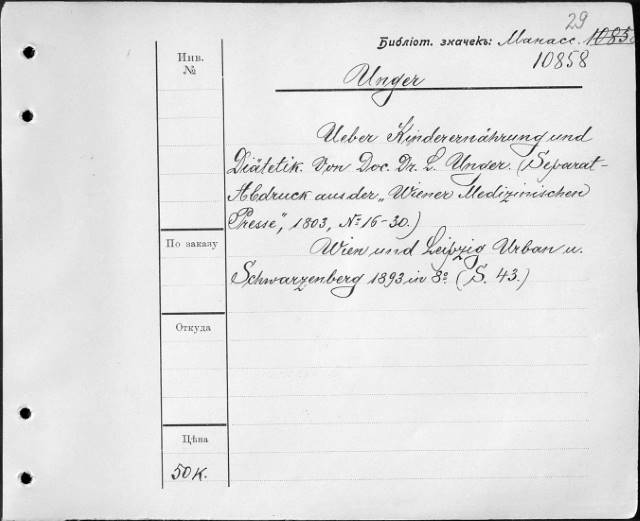 29
Библіот. значекъ: Манасс. 1085
10858
Инв.
№
Unger
Ueber Kinderernährung und
Diätetik. Von Doc. Dr. L. Unger. (Separat-
Abdruck aus der „Wiener Medizinischen
Presse", 1803, № 16-30.)
По заказу
Wien und Leipzig Urban u.
Schwarzenberg 1893 in 8º (S. 43.)
Откуда
Цѣна
50 К.